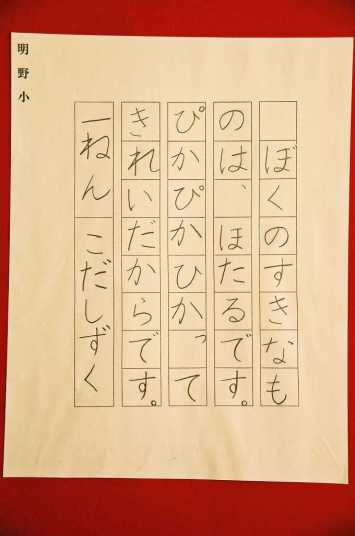 ぼくのすきなも
のは、ほたるです。
ぴかぴかひかって
きれいだからです。
一ねん こだしずく
明野小